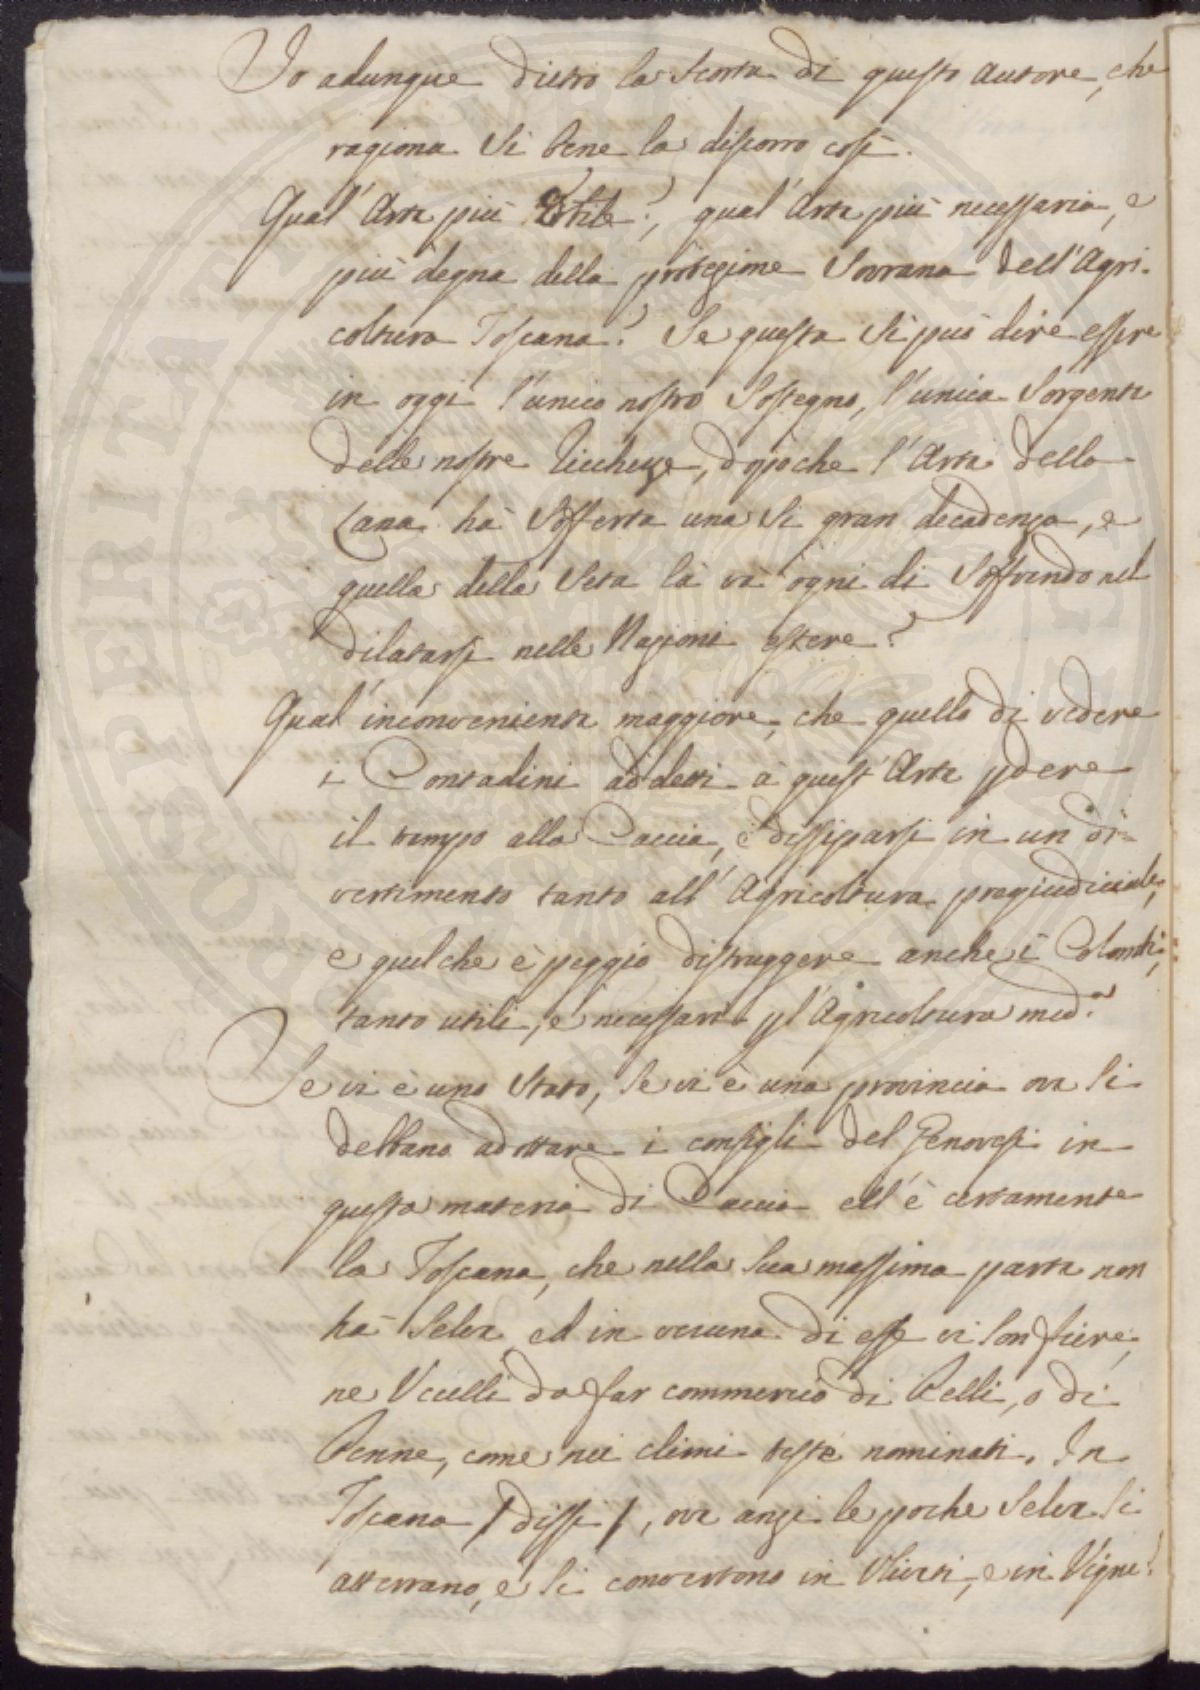 Io adunque dietro la scorta di questo autore, che
ragiona sì bene la discorro così.
Qual'Arte più Utile?, qual'Arte più necessaria, e
più degna della protezione Sovrana dell'Agri-
coltura Toscana? Se questa si può dire essere
in oggi l'unico nostro sostegno, l'unica sorgente
delle nostre Ricchezze, dopoche l'Arte della
Lana hà sofferta una sì gran decadenza, e
quella della Seta la và ogni dì soffrendo nel
dilatarsi nelle Nazioni estere?
Qual'inconveniente maggiore, che quello di vedere
i Contadini addetti à quest'Arte pdere
il tempo alla Caccia, e dissiparsi in un di-
vertimento tanto all'Agricoltura pregiudiciale,
e quel che è peggio distruggere anche i Colombi,
tanto utili, e necessari p l'Agricoltura med.a
Se vi è uno Stato, se vi è una provincia ove si
debbano adottare i consigli del Genovesi in
questa materia di Caccia ell'è certamente
la Toscana, che nella sua massima parte non
hà Selve ed in veruna di esse vi son fiere,
ne Uccelli da far commercio di Pelli, o di
Penne, come nei climi testè nominati. In
Toscana / dissi /, ove anzi le poche Selve si
atterrano, e si convertono in Uliveti, e in Vigne!